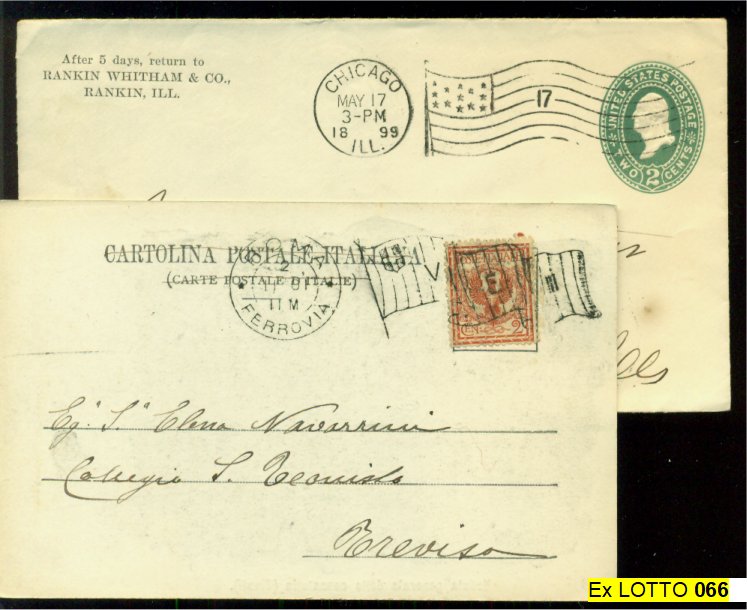 After 5 days, return to
RANKIN WHITHAM & CO.,
RANKIN, ILL.
CHICAGO
MAY 17
3-PM
18 99
ILL.
17
UNITED STATES POSTAGE
TWO 2 CENTS
CARTOLINA POSTALE ITALIANA
(CARTE POSTALE D'ITALIE)
2
01
11 M
FERROVIA
V
E
III
2
Elena Navarrini
Collegio S. Teonisto
Treviso
Ex LOTTO 066